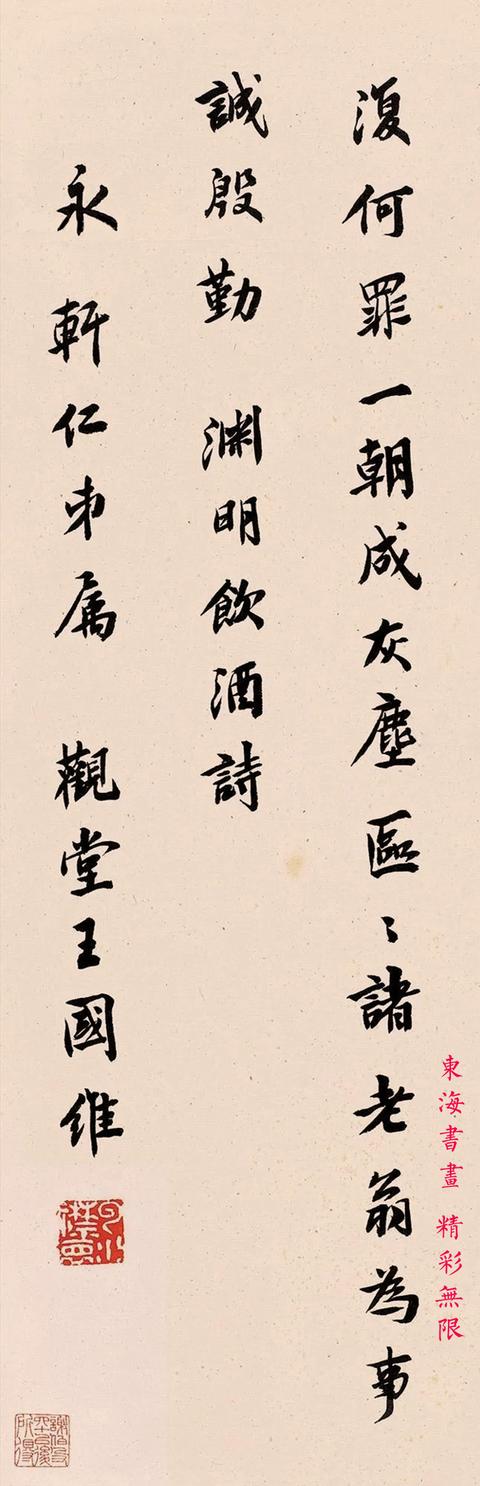 復何罪一朝成灰塵區〻諸老翁為事
誠殷勤 淵明飲酒詩
永軒仁弟属 觀堂王國維
東海書畫 精彩無限